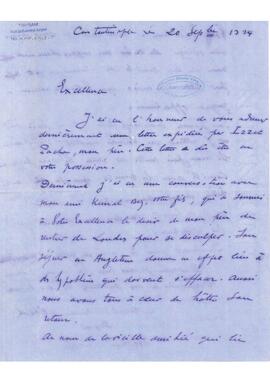 Constantinople le 20 Sept 1914
Excellence
J'ai eu l'honneur de vous adresser
dernièrement une lettre expédiée par Izzet
Pacha, mon père. Cette lettre a dû être en
votre possession.
j'ai eu une conversation avec
mon ami Kemal Bey, votre fils, qui a
à Votre Excellence le désir de mon père de
de Londres pour se disculper. Son
séjour en Angleterre donne en effet lieu à
des hypothèses qui doivent s'effacer. Aussi
nous avons tous à cœur de hâter son
retour.
Au nom de la vieille amitié qui lie